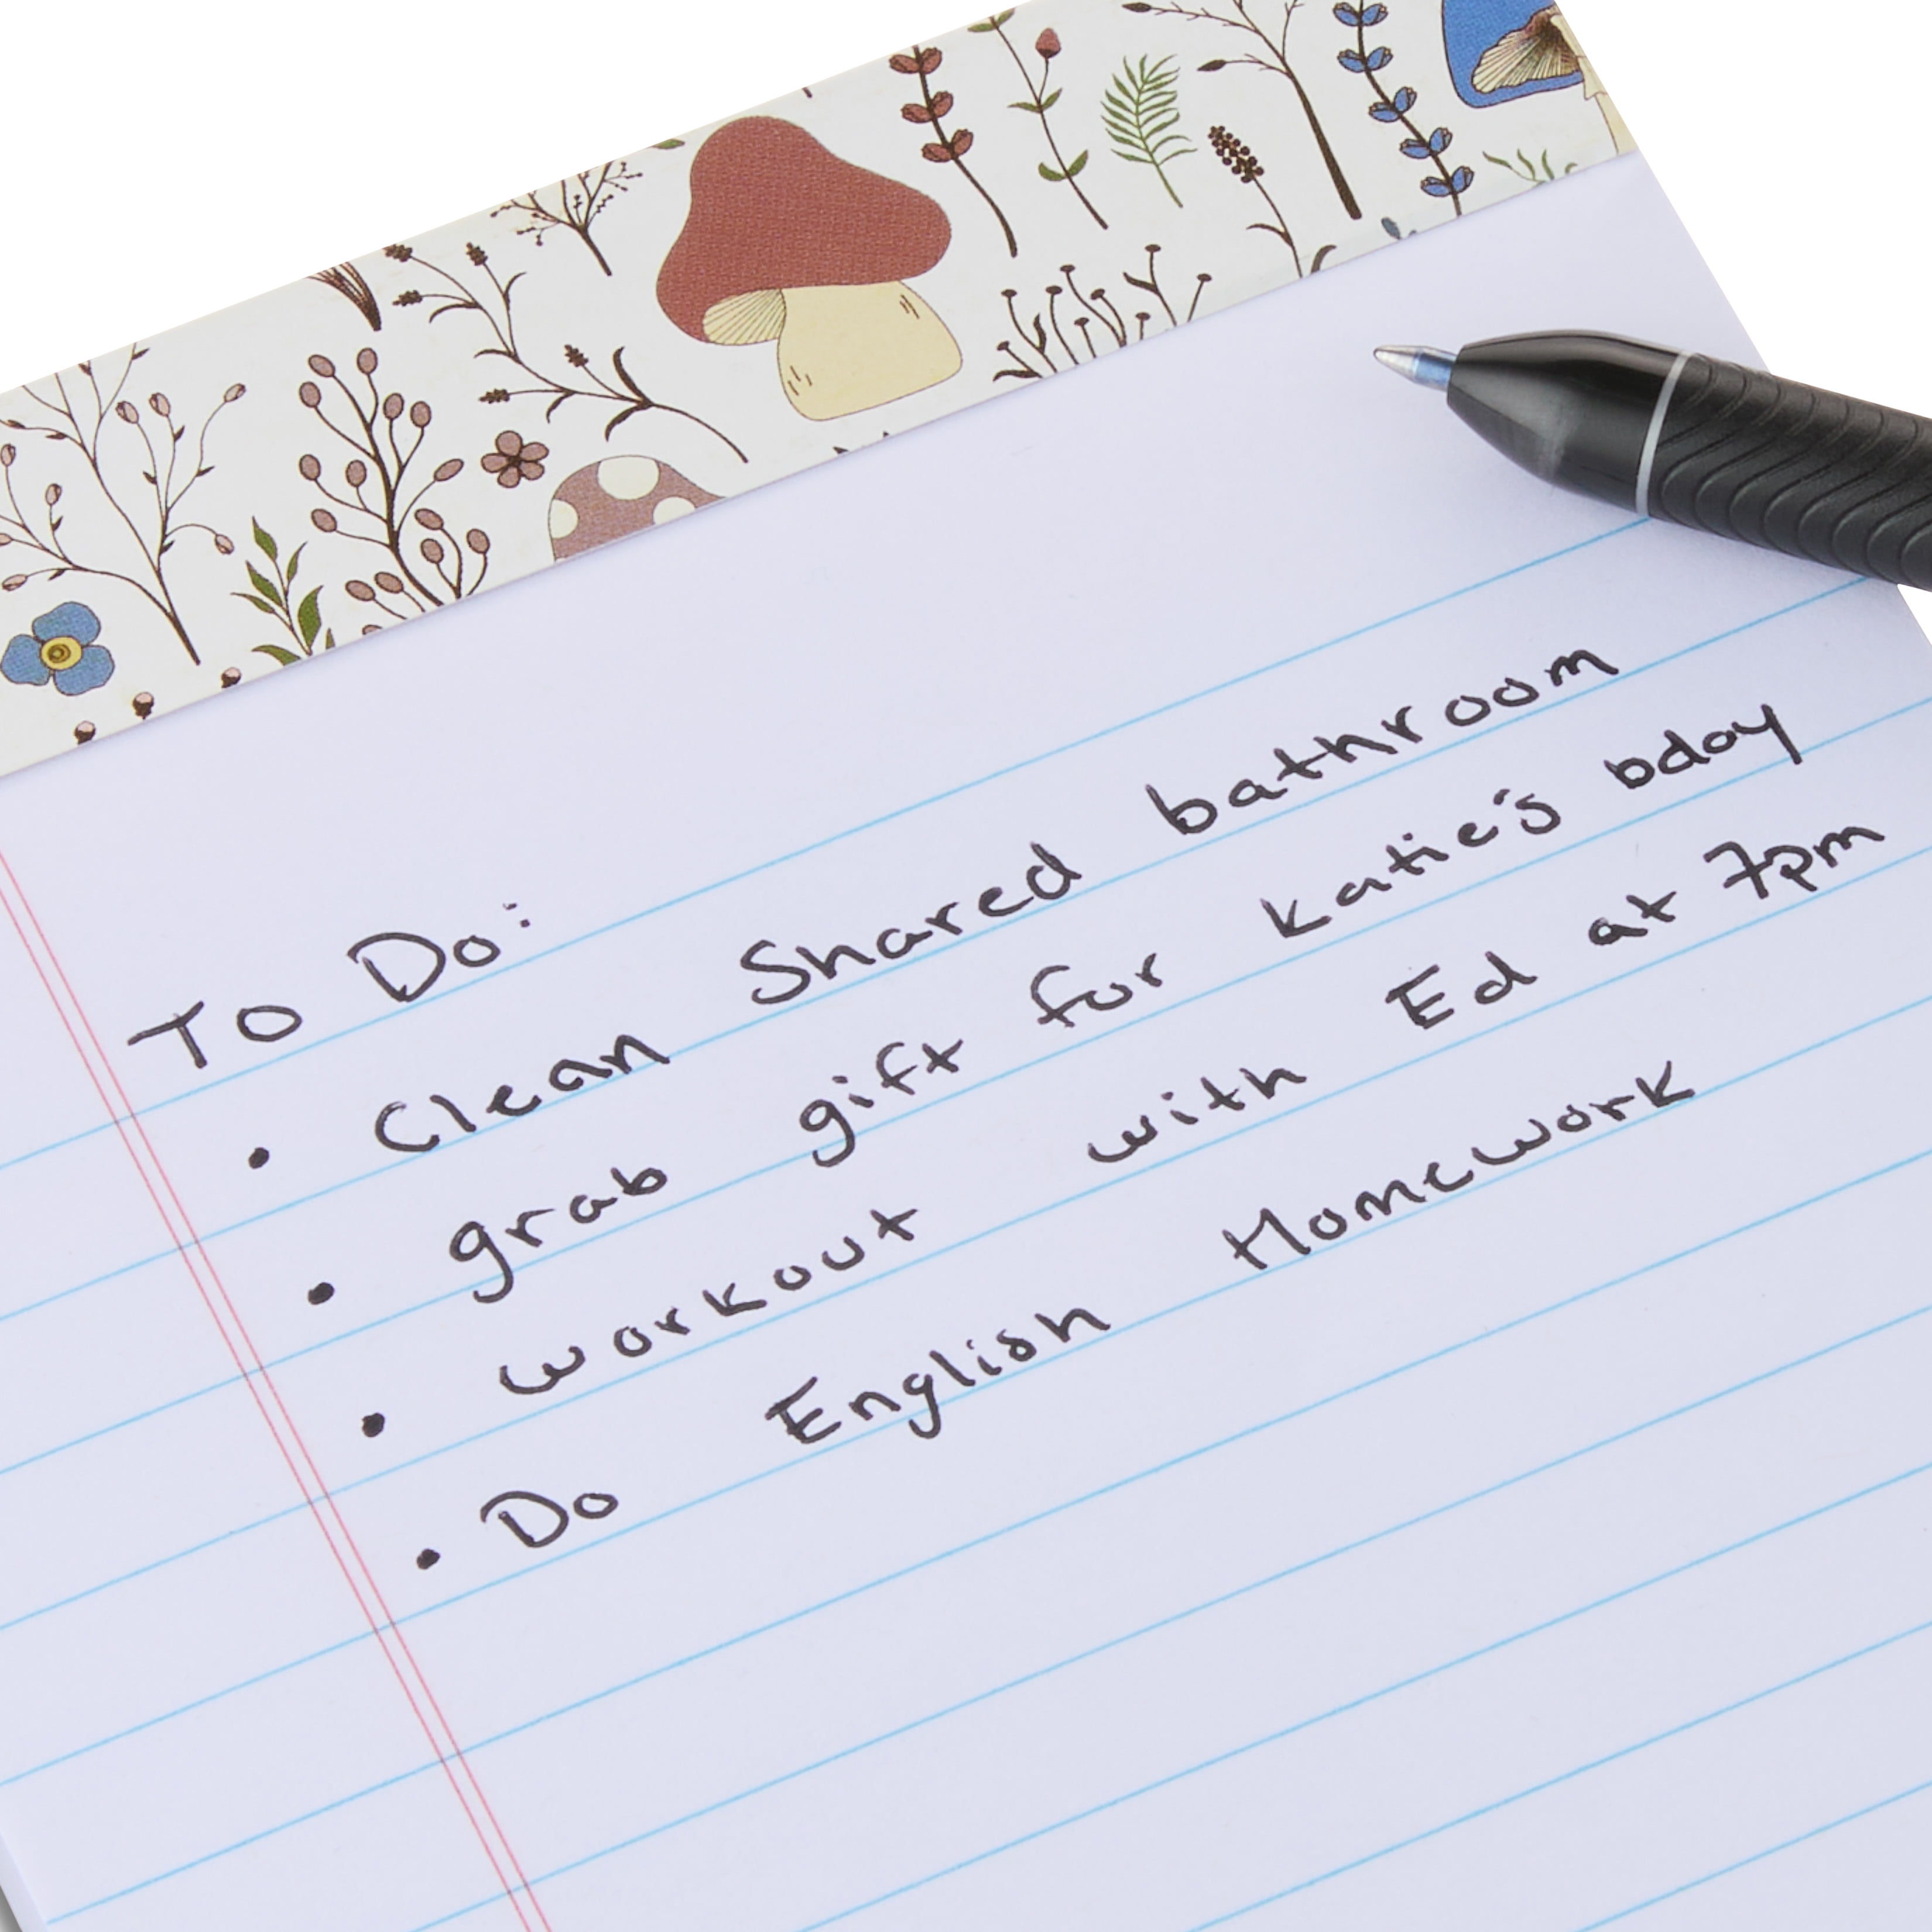 To Do:
• Clean Shared bathroom
• grab gift for Katie's bday
• workout with Ed at 7pm
• Do English Homework